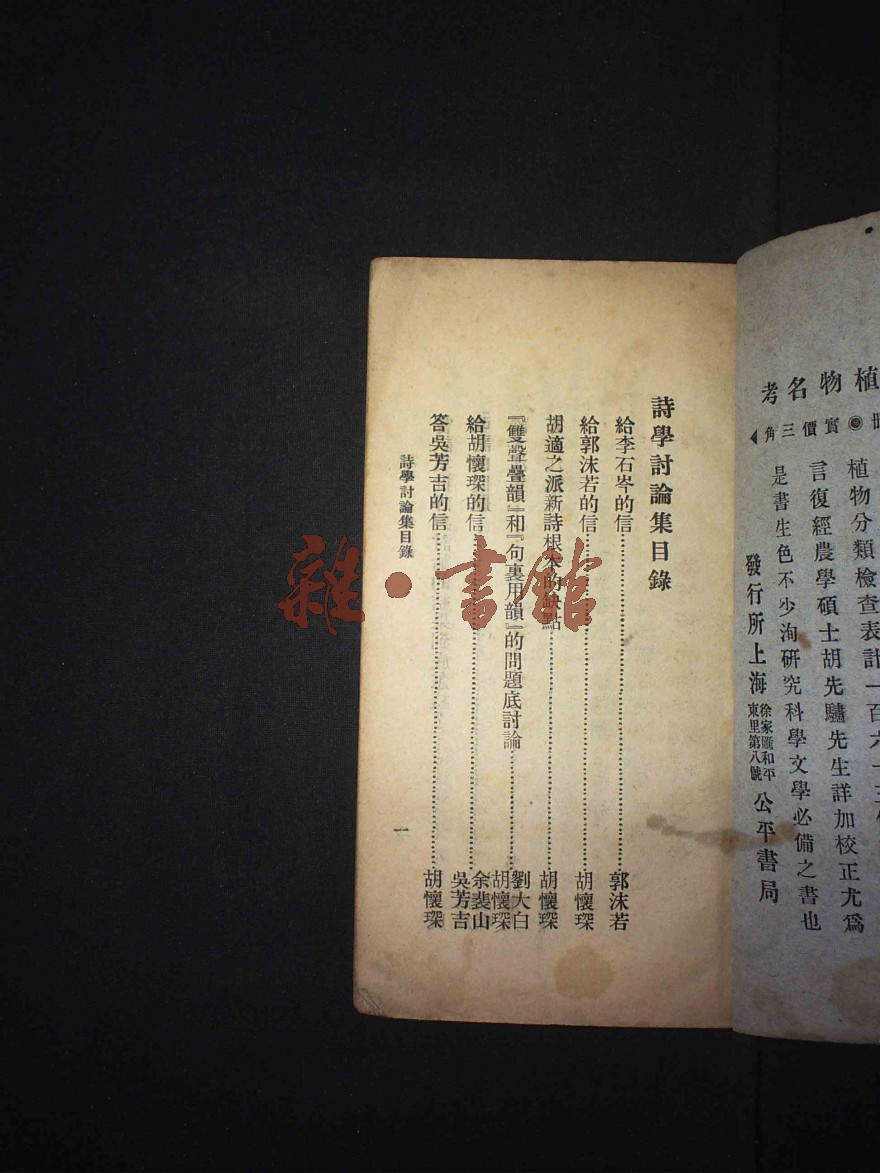 植物名考
冊◉實價三角◀
植物分類檢查表計一百六十
言復經農學碩士胡先驌先生詳加校正尤爲
是書生色不少洵研究科學文學必備之書也
發行所上海徐家匯和平東里第八號公平書局
詩學討論集目錄
給李石岑的信……郭沫若
給郭沫若的信……胡懷琛
胡適之派新詩根本的缺點……胡懷琛
『雙聲疊韻』和『句裏用韻』的問題底討論……劉大白 胡懷琛
給胡懷琛的信……余裴山 吳芳吉
答吳芳吉的信……胡懷琛
詩學討論集目錄
一
雜·書館